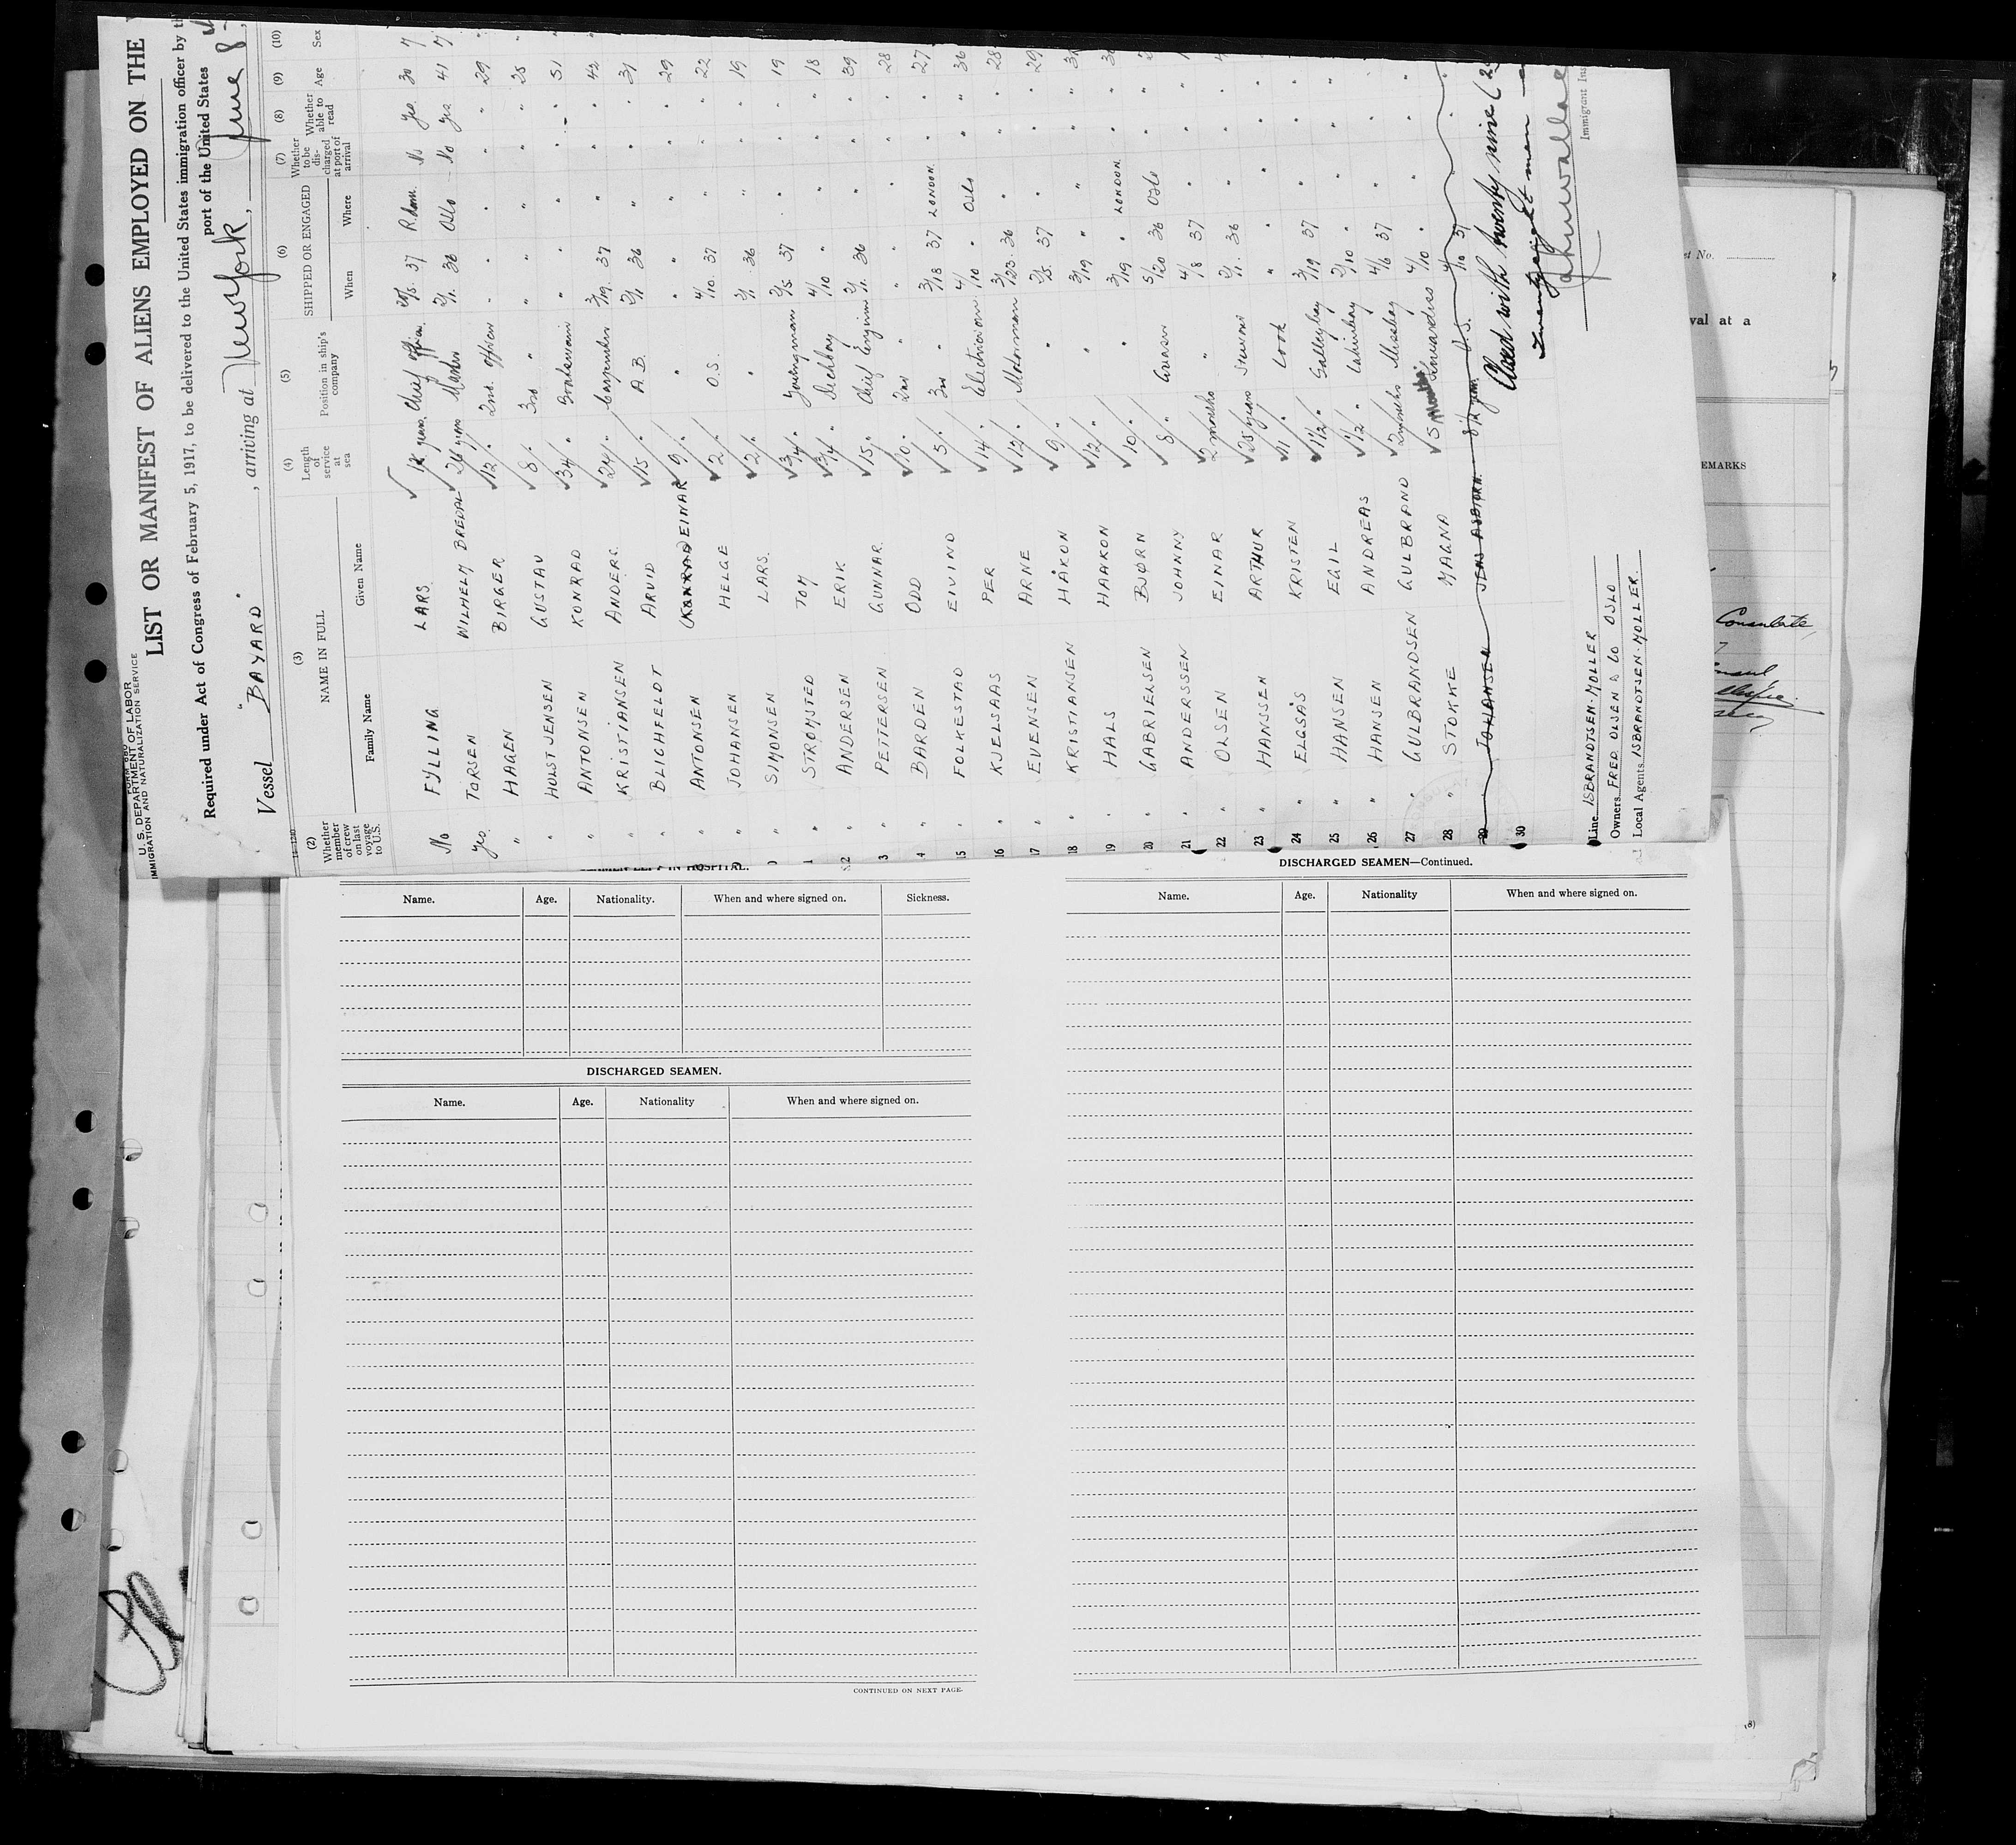 FORM 680
U. S. DEPARTMENT OF LABOR
IMMIGRATION AND NATURALIZATION SERVICE
LIST OR MANIFEST OF ALIENS EMPLOYED ON THE
Required under Act of Congress of February 5, 1917, to be delivered to the United States immigration officer by th
port of the United States
Vessel "BAYARD", arriving at New York, June 8th,
(2) Whether member of crew on last voyage to U.S.
(3) NAME IN FULL
Family Name Given Name
(4) Length of service at sea
(5) Position in ship's company
(6) SHIPPED OR ENGAGED
When Where
(7) Whether to be discharged at port of arrival
(8) Whether able to read
(9) Age
(10) Sex
No FYLLING LARS. years Chief officer. 37 R.dam. No Yes 30
Yes TORSEN WILHELM BREDAL 26 years Master 2/1. 36 Oslo No Yes 41
" HAGEN BIRGER 12 " 2nd. officer " " " " 29
" HOLST JENSEN GUSTAV 8 " 3rd " " " " " 25
" ANTONSEN KONRAD 34 " Boatswain " " " " 51
" KRISTIANSEN ANDERS. 24 " Carpenter 3/19. 37 " " " 42
" BLICHFELDT ARVID 15 " A.B. 2/1 36 " " " 31
" ANTONSEN EINAR 9 " " " " " " 29
" JOHANSEN HELGE 2 " O.S. 4/10. 37 " " " 22
" SIMONSEN LARS. 2 " " 2/1 36 " " " 19
" STRØMSTED TOM 3/4 " Youngman 2/5. 37 " " " 19
" ANDERSEN ERIK 3/4 " Deckboy 4/10 " " " " 18
" PETTERSEN GUNNAR. 15 " Chief Engineer 2/1. 36 " " " 39
4 " BARDEN ODD 10 " 2nd " " " " " 28
15 " FOLKESTAD EIVIND 5 " 3rd " 3/18 37 LONDON. " " 27
16 " KJELSAAS PER 14 " Electrician 4/10 " Oslo " " 36
17 " EVENSEN ARNE 12 " Motorman 3/23. 36 " " " 28
18 " KRISTIANSEN HÅKON 9 " " 2/5. 37 " " " 29
19 " HALS HAAKON 12 " " 3/19 " " " "
20 " GABRIELSEN BJØRN 10 " " 3/19 " LONDON. " "
21 " ANDERSSEN JOHNNY 8 " Greaser 5/20 36 Oslo " "
22 " OLSEN EINAR 2 months " 4/8 37 " " "
23 " HANSSEN ARTHUR 25 years Steward 2/11. 36 " " "
24 " ELGSÅS KRISTEN 11 " Cook " " " "
25 " HANSEN EGIL 1 1/2 " Galleyboy 3/19 37 " " "
26 " HANSEN ANDREAS 1/2 " Cabinboy 2/10 " " " "
27 " GULBRANDSEN GULBRAND 2 months Messboy 4/6 37 " " "
28 " STOKKE MAGNA 5 Months Stewardess 4/10 " " " "
29 JOHANSEN JENS ASBJØRN. 8 1/2 years O.S. 4/10 37
30
Closed with twenty nine (29
Twenty eight men
John Wallace
Immigrant Ins
Line ISBRANDTSEN-MOLLER
Owners FRED. OLSEN & CO OSLO
Local Agents ISBRANDTSEN-MOLLER.
st No.
val at a
EMARKS
Consulate,
SEAMEN LEFT IN HOSPITAL.
Name. Age. Nationality. When and where signed on. Sickness.
DISCHARGED SEAMEN.
Name. Age. Nationality When and where signed on.
CONTINUED ON NEXT PAGE.
DISCHARGED SEAMEN—Continued.
Name. Age. Nationality When and where signed on.